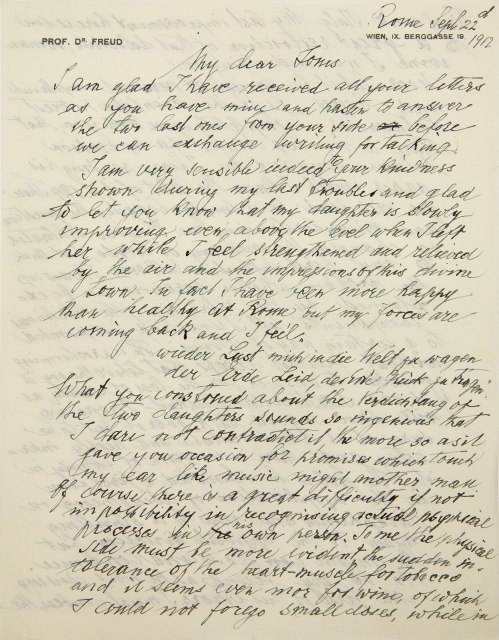 Rome Sept 22d
1912
PROF. Dr. FREUD
WIEN, IX. BERGGASSE 19.
My dear Jones
I am glad I have received all your letters
as you have mine and hasten to answer
the two last ones from your side before
we can exchange writing for talking.
I am very sensible indeed of your kindness
shown during my last troubles and glad
to let you know that my daughter is slowly
improving even above the level when I left
her, while I feel strengthened and relieved
by the air and the impressions of this divine
town. In fact I have been more happy
than healthy at Rome but my forces are
coming back and I feel:
wieder Lust mich in die Welt zu wagen
der Erde Leid der Erde Glück zu tragen
What you construed about the Verdichtung of
the two daughters sounds so ingenious that
I dare not contradict it, the more so as it
gave you occasion for promises which touch
my ear like music might another man
Of course there is a great difficulty if not
impossibility in recognising actual psychical
processes in his own person. To me the physical
side must be more evident, the sudden in-
tolerance of the heart-muscle for tobacco
and it seems even more for wine, of which
I could not forego small doses, while in